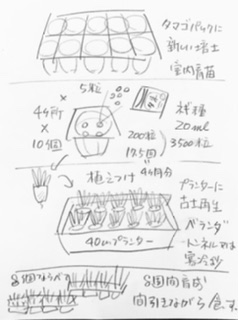 タマゴパックに
新しい培土
室内育苗
5粒
×
4ヶ所
×
10個
200粒
17.5回
種
20ml
3500粒
4ヶ月分
植えつけ
プランターに
古土再生
ベランダ
トンネル又は
寒冷紗
40cmプランター
8個ならべて
8週間育成
間引きながら食す